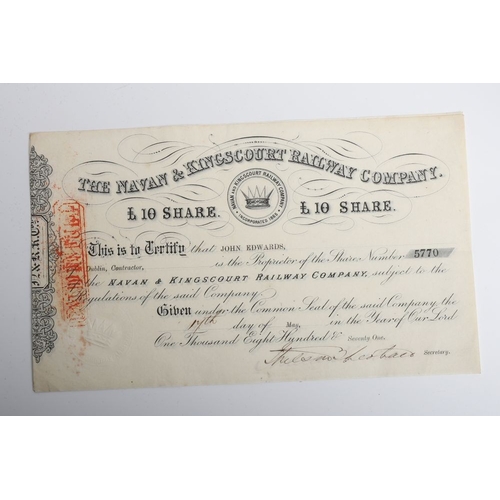 THE NAVAN & KINGSCOURT RAILWAY COMPANY.
NAVAN AND KINGSCOURT RAILWAY COMPANY
INCORPORATED
£10 SHARE. £10 SHARE.
This is to Certify that JOHN EDWARDS,
Dublin, Contractor, is the Proprietor of the Share Number 5770
The NAVAN & KINGSCOURT RAILWAY COMPANY, subject to the
Regulations of the said Company.
Given under the Common Seal of the said Company, the
day of May, in the Year of Our Lord
One Thousand Eight Hundred & Seventy One.
Secretary.